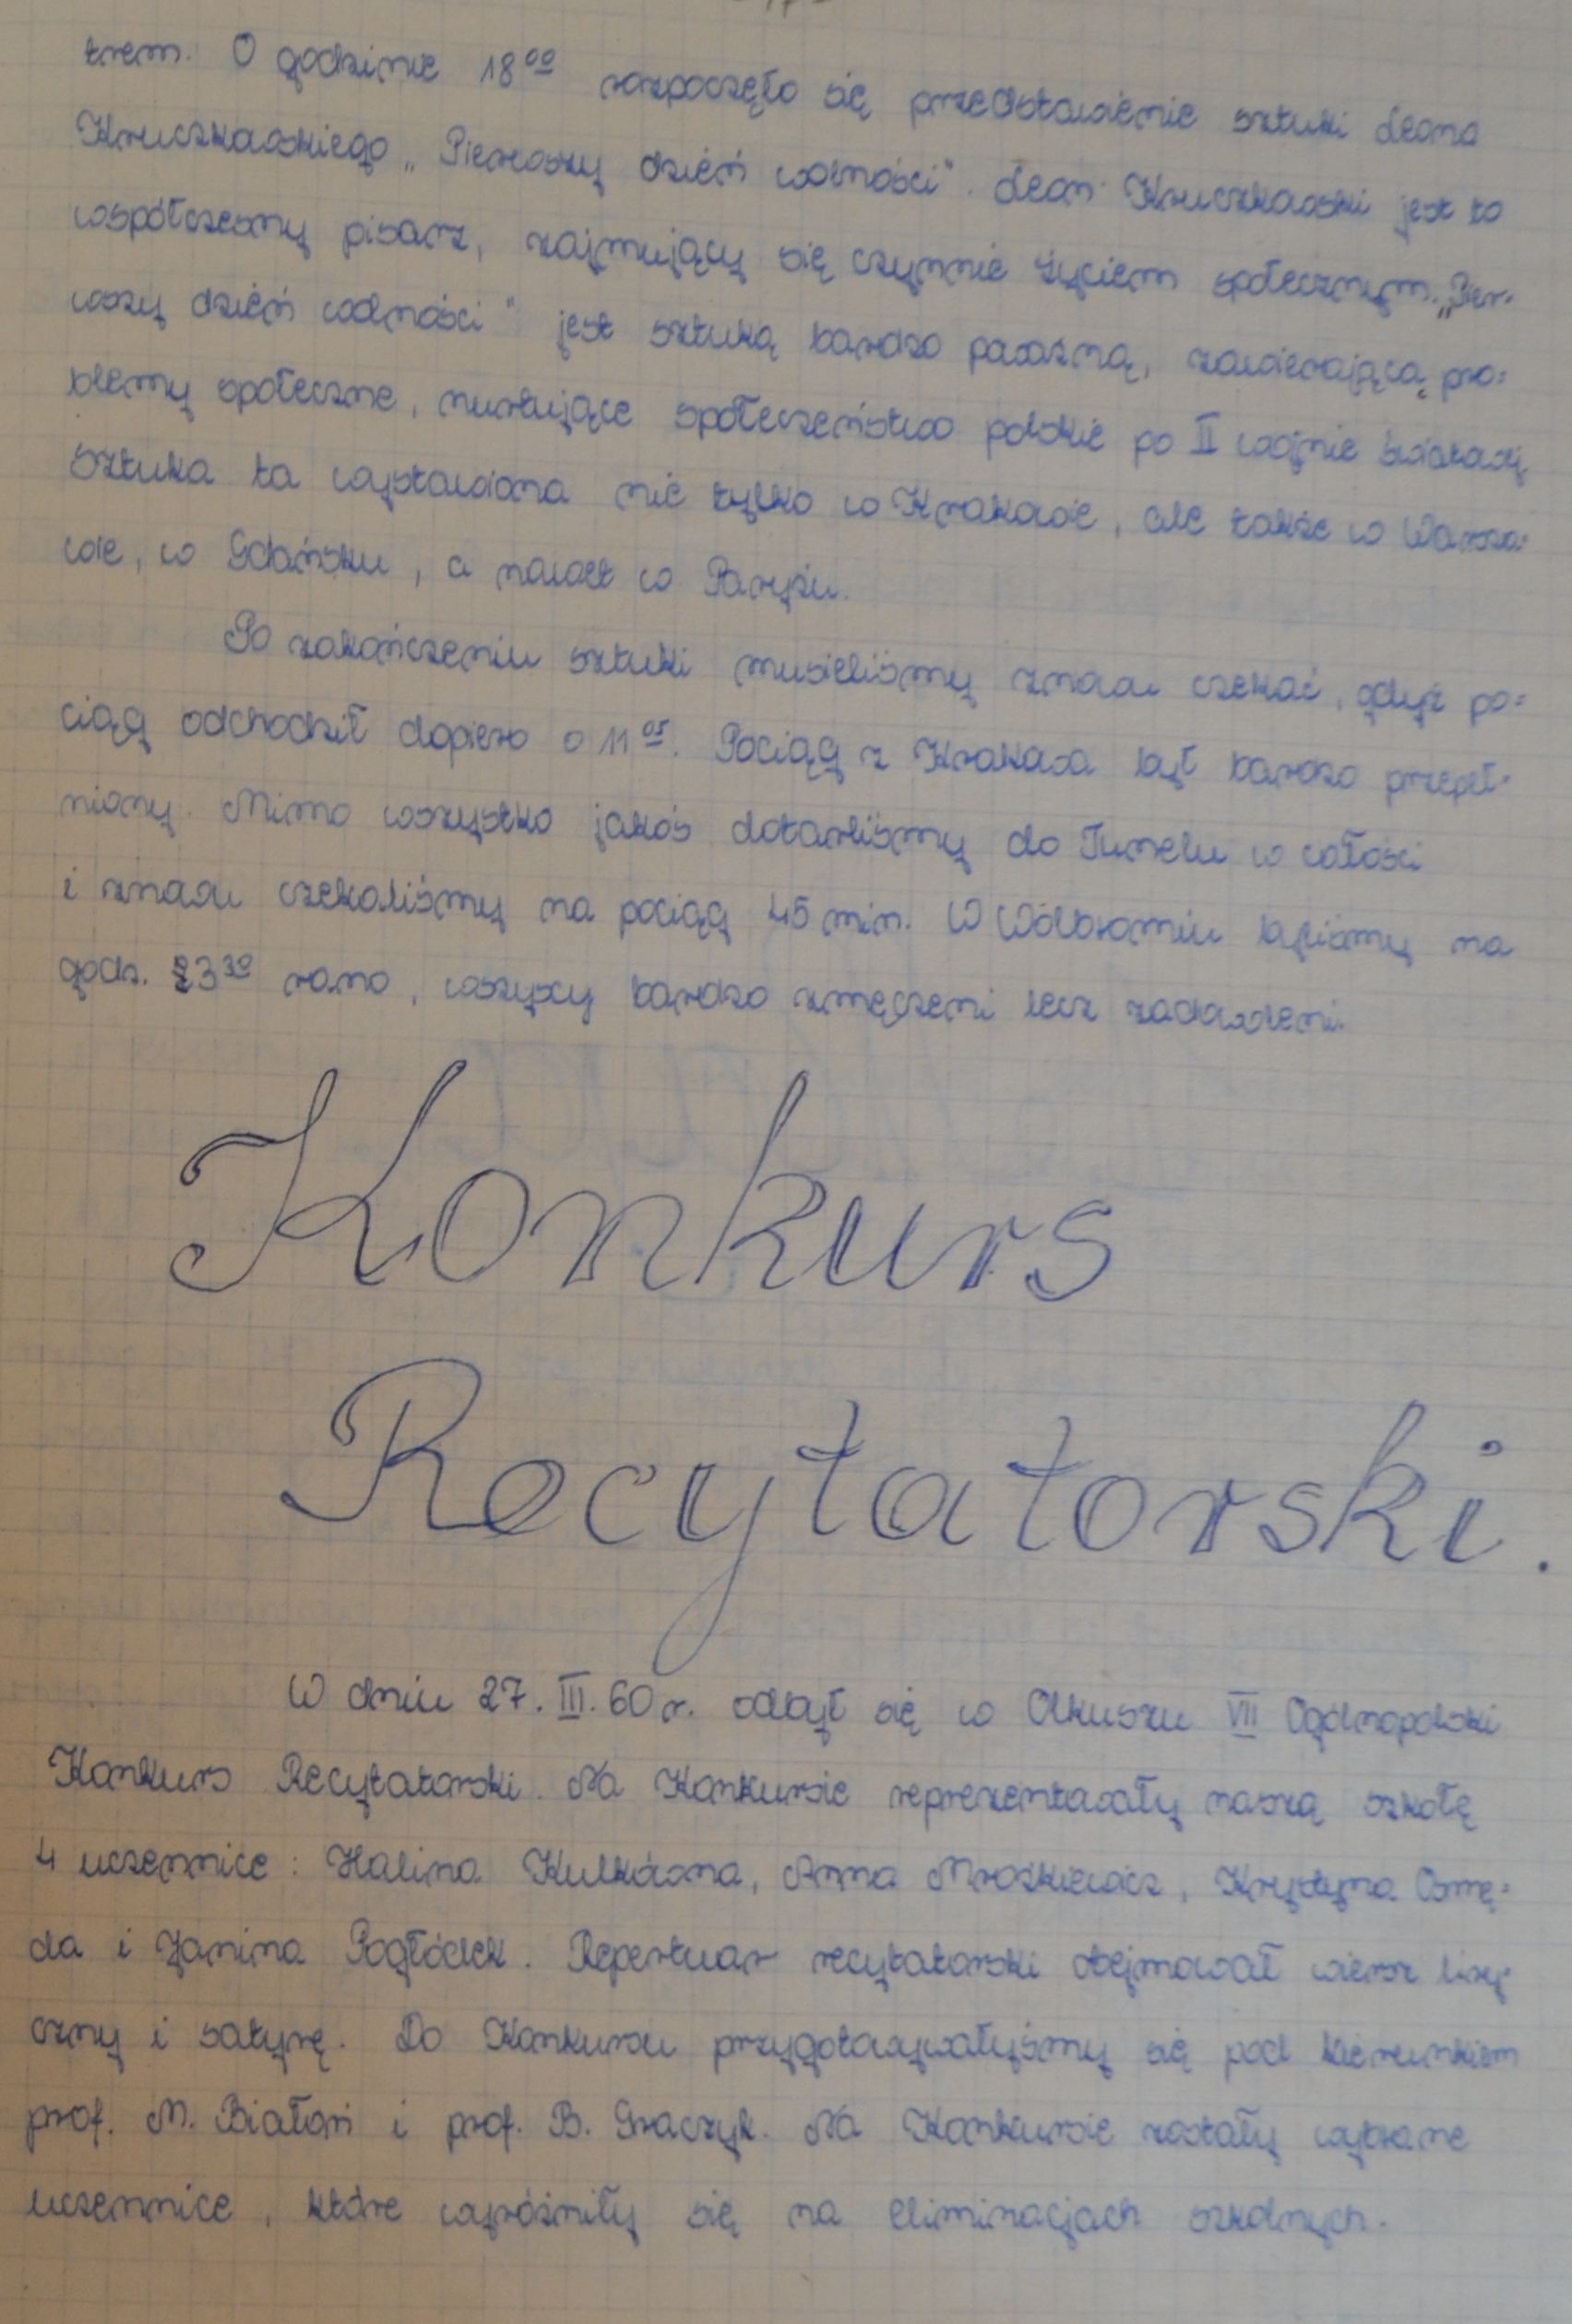 -17-
trem. O godzinie 18⁰⁰ rozpoczęło się przedstawienie sztuki Leona
Kruczkowskiego „Pierwszy dzień wolności". Leon Kruczkowski jest to
współczesny pisarz, zajmujący się czynnie życiem społecznym. „Pier-
wszy dzień wolności" jest sztuką bardzo poważną, zawierającą pro=
blemy społeczne, nurtujące społeczeństwo polskie po II wojnie światowej.
Sztuka ta wystawiana nie tylko w Krakowie, ale także w Warsza=
wie, w Gdańsku, a nawet w Paryżu.
Po zakończeniu sztuki musieliśmy znowu czekać, gdyż po=
ciąg odchodził dopiero o 11⁰⁵. Pociąg z Krakowa był bardzo przepeł-
niony. Mimo wszystko jakoś dotarliśmy do Tunelu w całości
i znowu czekaliśmy na pociąg 45 min. W Wolbromiu byliśmy na
godz. 3³⁰ rano, wszyscy bardzo zmęczeni lecz zadowoleni.
Konkurs
Recytatorski.
W dniu 27. III. 60 r. odbył się w Olkuszu VII Ogólnopolski
Konkurs Recytatorski. Na Konkursie reprezentowały naszą szkołę
4 uczennice: Halina Kulkówna, Anna Mroźkiewicz, Krystyna Osmę-
da i Janina Pogłódek. Repertuar recytatorski obejmował wiersz liry-
czny i satyrę. Do Konkursu przygotowywałyśmy się pod kierunkiem
prof. M. Białoń i prof. B. Graczyk. Na Konkursie zostały wybrane
uczennice, które wyróżniły się na eliminacjach szkolnych.